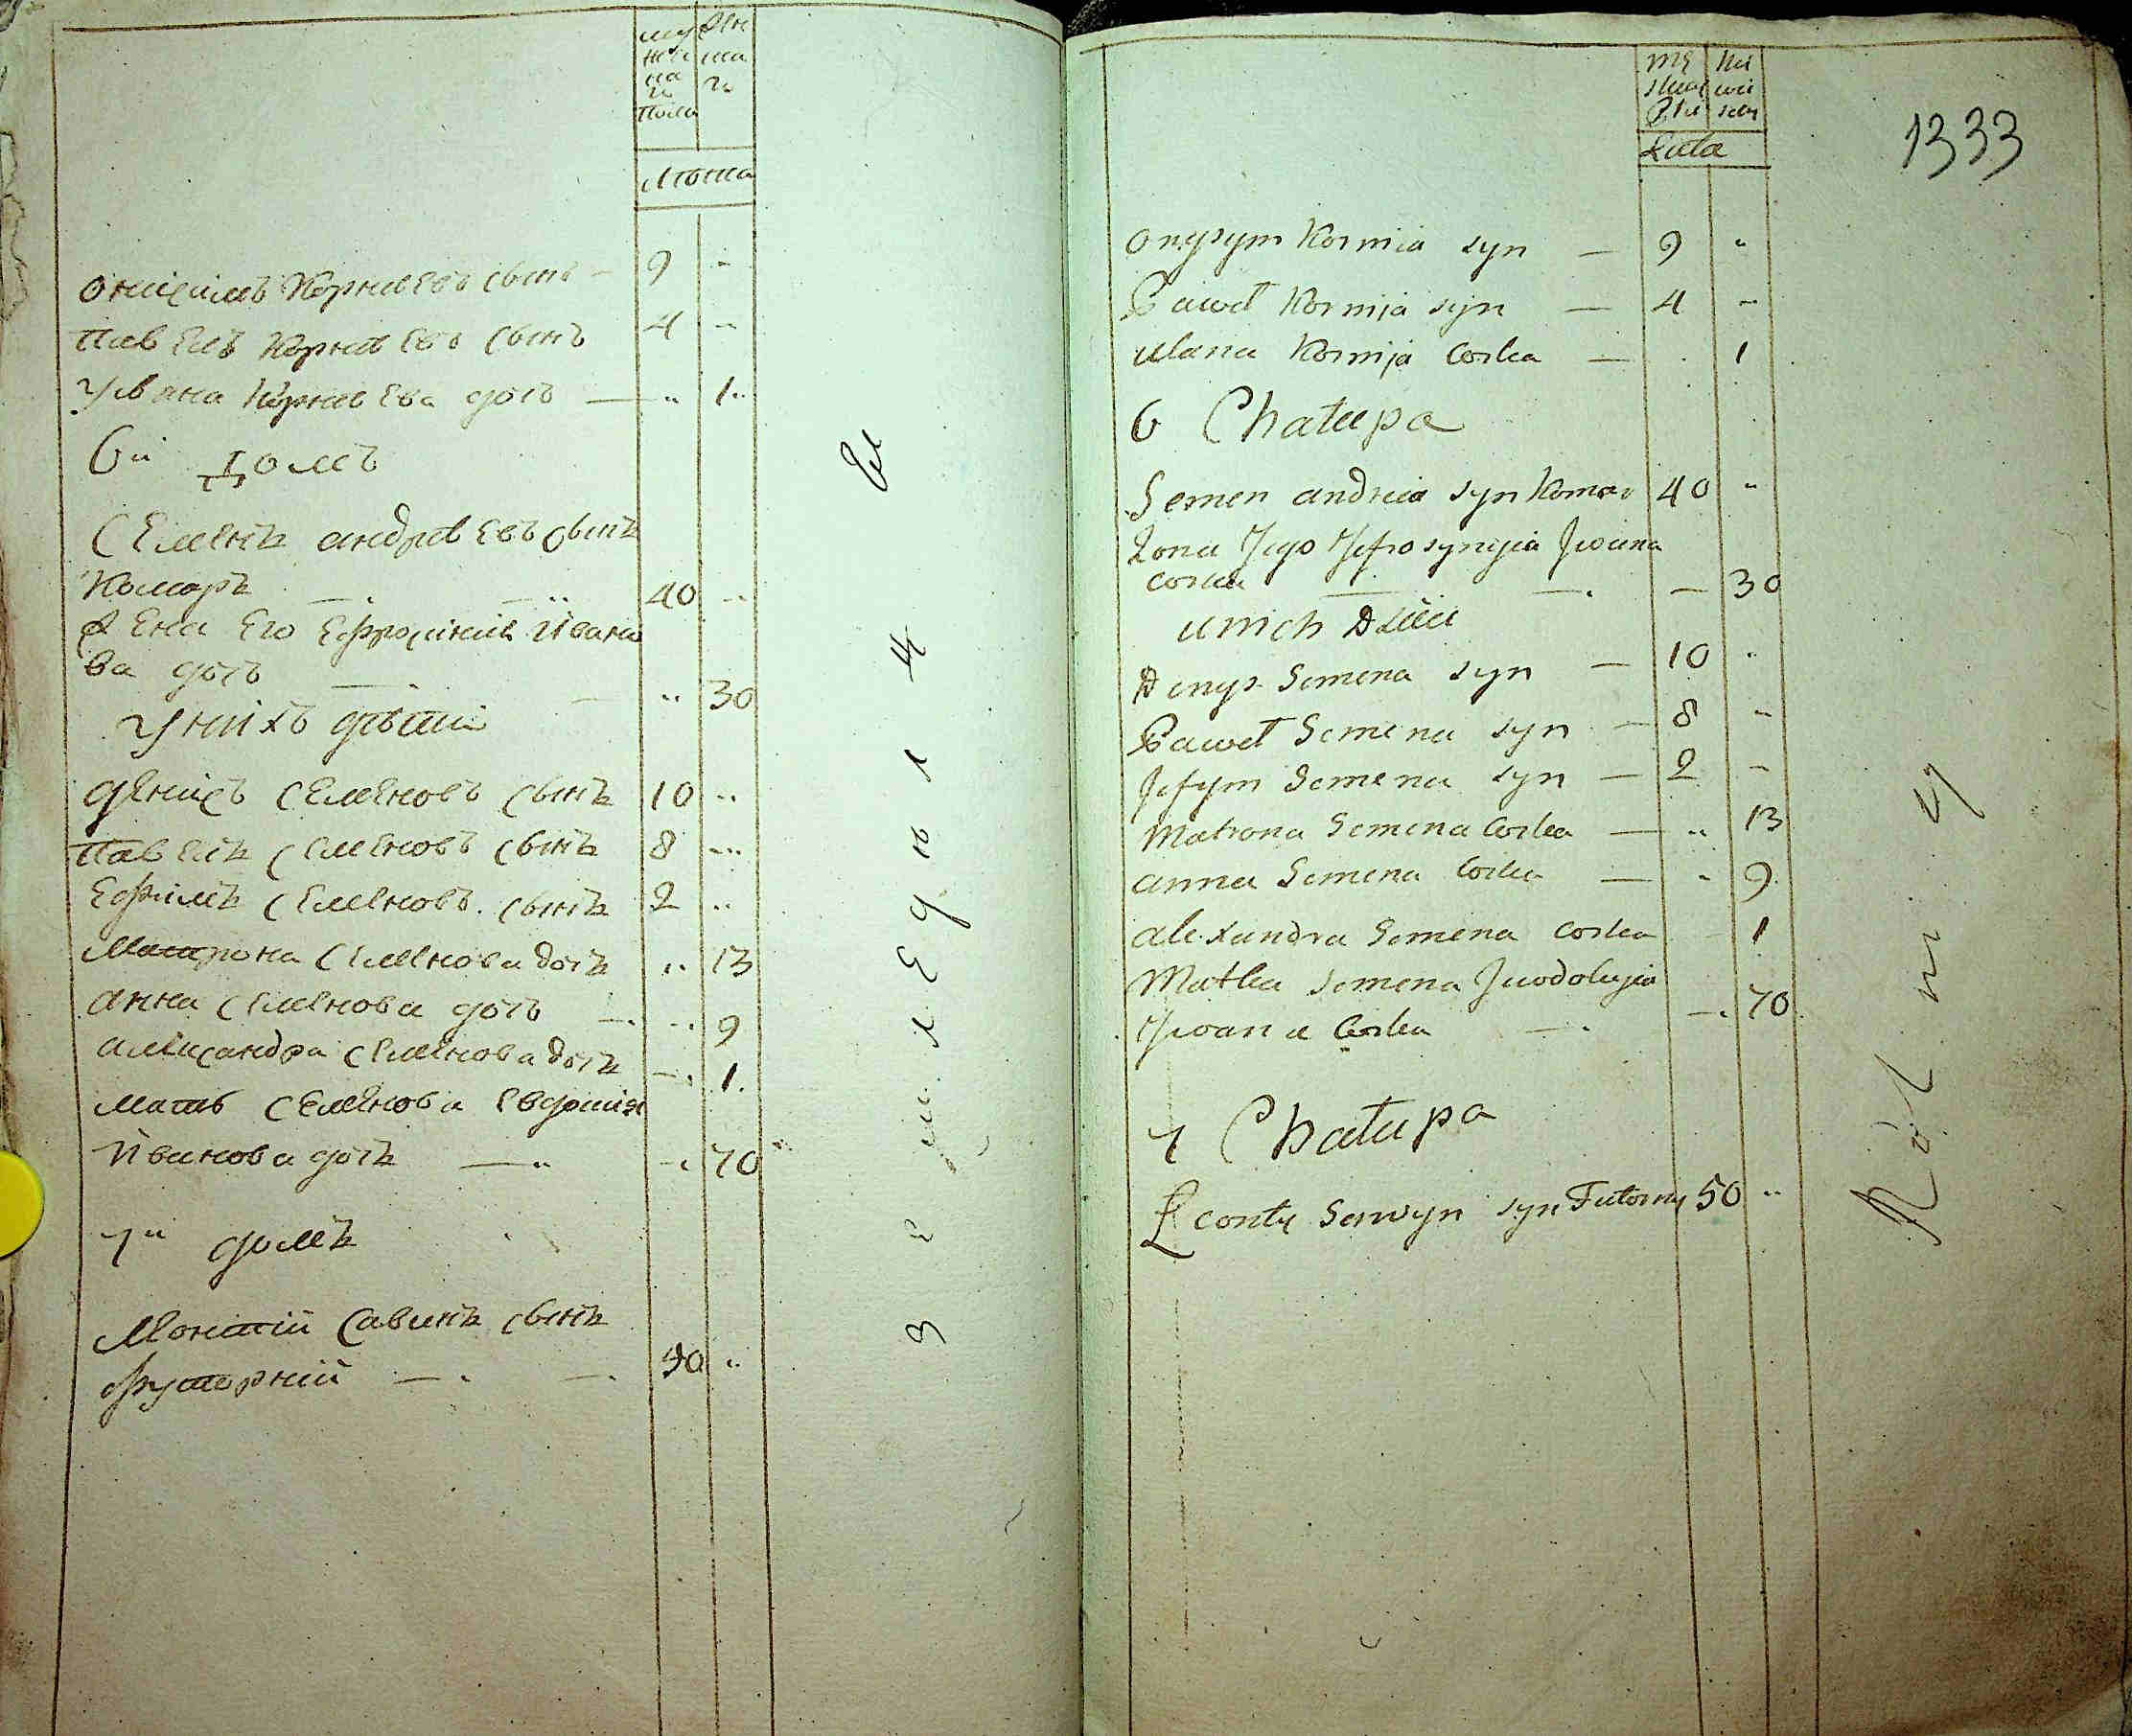 му
жеска
го
пола
жен
ска
го
Лѣта
Онисимъ Корнѣевъ сынъ — 9 "
Павелъ Корнѣевъ сынъ 4 "
Улияна Корнѣева дочь — " 1
6й Домъ
Семенъ Андрѣевъ сынъ
Комаръ 40 "
Жена Его Ефросиния Ивано
ва дочь " 30
У нихъ дѣти
Денисъ Семеновъ сынъ 10 "
Павелъ Семеновъ сынъ 8 "
Ефимъ Семеновъ сынъ 2 "
Матрона Семенова дочь " 13
Анна Семенова дочь " 9
Александра Семенова дочь " 1
Мать Семенова Евдокия
Иванова дочь — " 70
7й домъ
Савинъ сынъ
Футорний — 50 "
Землед
1333
mę
skiey
Płci
Lata
Onysym Kornia syn — 9 "
Paweł Kornija syn — 4 "
Ulana Kornija Corka — 1
6 Chałupa
Semen Andreia syn Komar 40 "
Zona Jego Jefrosynyia Jwana
corka — 30
U nich Dzieci
Denys Semena syn — 10 "
Paweł Semena syn — 8 "
Jefym Semena syn — 2 "
Matrona Semena Corka — " 13
Anna Semena Corka — " 9
Alexandra Semena corka 1
Matka Semena Jwdokyia
Jwana Corka — 70
7 Chałupa
Leonty Sawyn syn Futorny 50 "